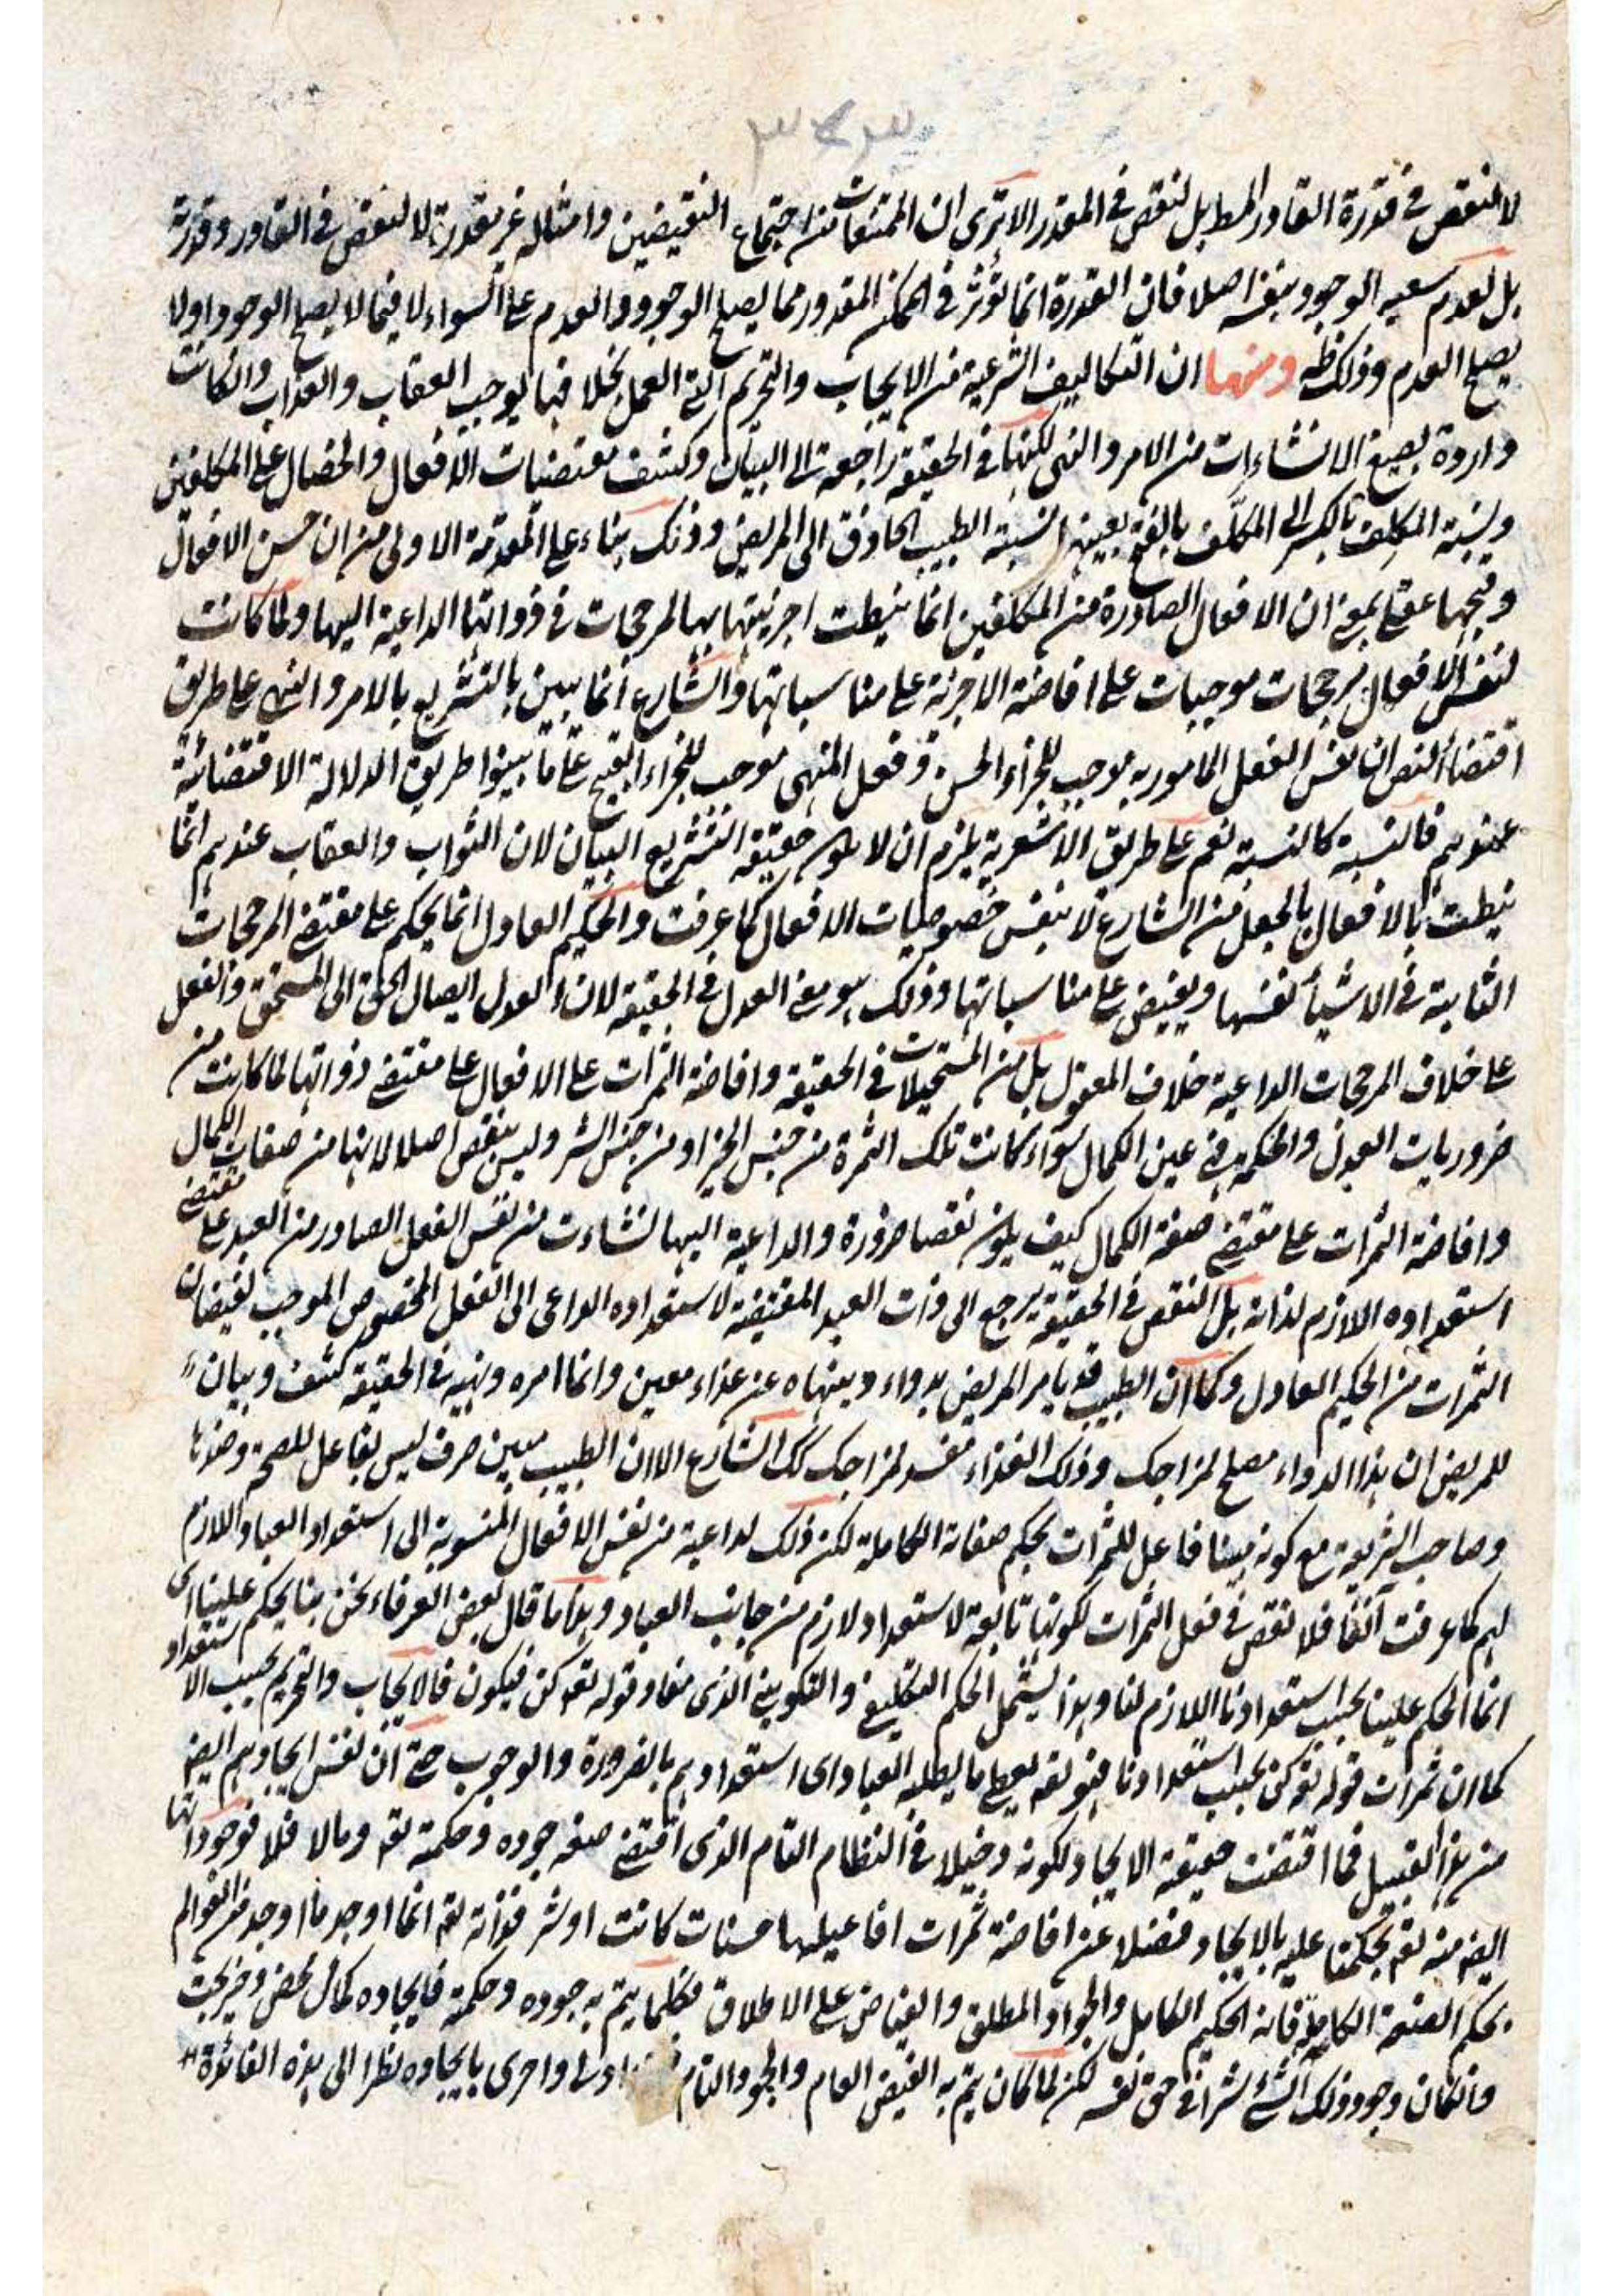 ٣٤٣
لا لنقص في قدرة القادر المط بل لنقص في المقدر الا ترى ان الممتنعات من اجتماع النقيضين وامثاله غير مقدرة لا لنقص في القادر وقدرته
بل لعدم سعيه الوجود بنفسه اصلا فان القدرة انما تؤثر في الممكن المقدور مما يصلح الوجود والعدم على السواء لا فيما لا يصلح الوجود او لا
يصلح العدم وذلك ظه ومنها ان التكاليف الشرعية من الايجاب والتحريم التي العمل بخلافها يوجب العقاب والعذاب وان كانت
واردة بصيغ الانشاءات من الامر والنهى لكنها في الحقيقة راجعة الى البيان وكشف مقتضيات الافعال والخصال على المكلفين
ونسبة المكلِف بالكسر الى المكلَف بالفتح بعينها نسبة الطبيب الحاذق الى المريض وذلك بناء على المقدمة الاولى من ان حسن الافعال
وقبحها عقلي بمعنى ان الافعال الصادرة من المكلفين انما نيطت اجزيتها بها لمرجحات في ذواتها الداعية اليها ولما كانت
لنفس الافعال مرجحات موجبات على افاضة الاجزئة على مناسباتها والشارع انما يبين بالتشريع بالامر والنهى على طريق
اقتضاء النص ان نفس الفعل المامور به موجب للجزاء الحسن وفعل المنهى موجب للجزاء القبيح على ما بينوا طريق الدلالة الاقتضائية
عندهم فالنسبة كالنسبة نعم على طريق الاشعرية يلزم ان لا يكون حقيقة التشريع البيان لان الثواب والعقاب عندهم انما
نيطت بالافعال بالجعل من الشارع لا بنفس خصوصيات الافعال كما عرفت والحكيم العادل انما يحكم على مقتضى المرجحات
الثابتة في الاشياء انفسها ويفيض على مناسباتها وذلك هو معنى العدل في الحقيقة لان العدل ايصال الحق الى المستحق والفعل
على خلاف المرجحات الداعية خلاف المعقول بل من المستحيلات في الحقيقة وافاضة الثمرات على الافعال على مقتضى ذواتها لما كانت من
ضروريات العدل والحكمة فهي عين الكمال سواء كانت تلك الثمرة من جنس الخير او من جنس الشر وليس بنقص اصلا لانها من صفات الكمال
وافاضة الثمرات على مقتضى صفة الكمال كيف يكون نقصا ضرورة والداعية اليها نشاءت من نفس الفعل الصادر من العبد على مقتضى
استعداده اللازم لذاته بل النقص في الحقيقة يرجع الى ذات العبد المقتضية لاستعداده الداعى الى الفعل المخصوص الموجب لفيضان
الثمرات من الحكيم العادل وكما ان الطبيب قد يامر المريض بدواء وينهاه عن غذاء معين وانما امره ونهيه في الحقيقة كشف وبيان
للمريض ان هذا الدواء مصلح لمزاجك وذلك الغذاء مفسد لمزاجك كك الشارع الا ان الطبيب مبين صرف ليس بفاعل للصحة وضدها
وصاحب الشريعة مع كونه مبينا فاعل للثمرات بحكم صفاته الكاملة لكن ذلك لداعية من نفس الافعال المنسوبة الى استعداد العباد اللازم
لهم كما عرفت آنفا فلا نقص في فعل الثمرات لكونها تابعة لاستعداد لازم من جانب العباد وهذا ما قال بعض العرفاء نحن بنا يحكم علينا اى
انما الحكم علينا بحسب استعدادنا اللازم لنا وهذا يشمل الحكم التكليفي والتكويني الذى مفاد قوله تعه كن فيكون فالايجاب والتحريم بحسب الاستعداد
كما ان ثمرات قوله تعه كن بحسب استعدادنا فهو تعه يعطى ما يطلبه العباد اى استعدادهم بالضرورة والوجوب حتى ان نفس ايجادهم ايضه
من هذا القبيل فما اقتضت حقيقة الايجاد لكونه دخيلا في النظام التام الذى اقتضى صفة جوده وحكمة تعه وما لا فلا فوجوداتها
ايضه منه تعه بحكمنا عليه بالايجاد فضلا عن افاضة ثمرات افاعيلها حسنات كانت او شر فذاته تعه انما اوجد ما اوجد من العوالم
بحكم الصفة الكاملة فانه الحكيم الكامل والجواد المطلق والفياض على الاطلاق فكلما يتم به جوده وحكمة فايجاده كمال محض وخير بحت
وانكان وجود ذلك الشئ شرا في حق نفسه لكن لما كان يتم به الفيض العام والجود التام اولى واحرى بايجاده نظرا الى هذه الفائدة